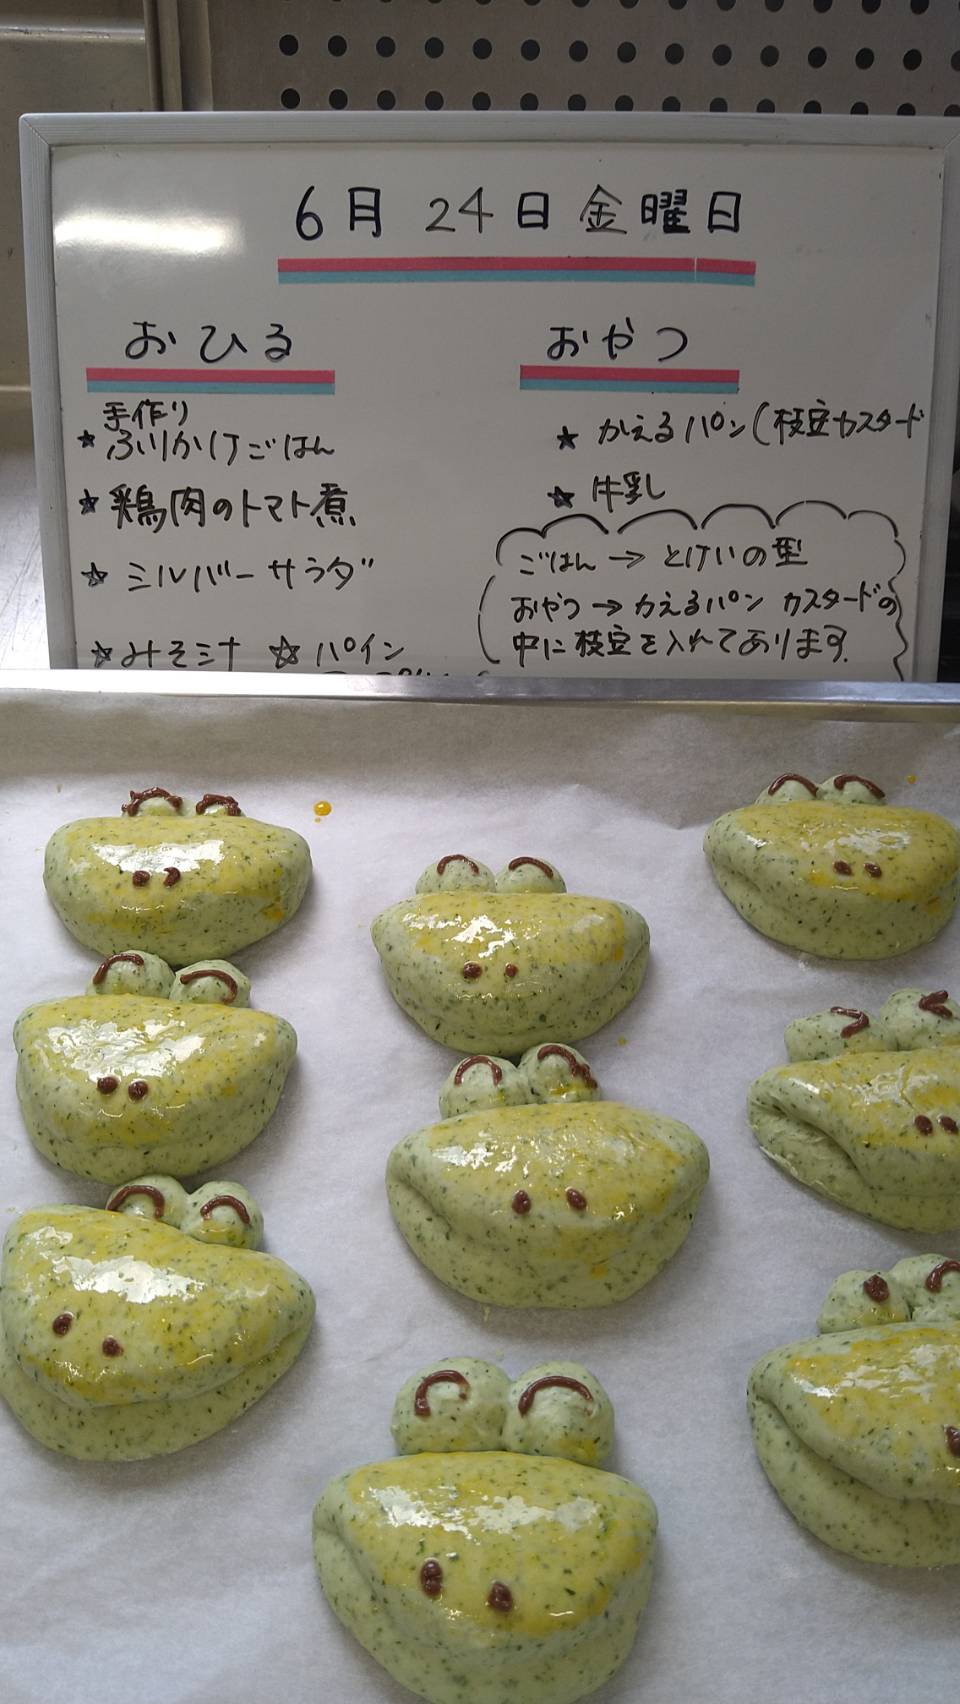 6月 24日 金曜日
おひる
手作り
★ ふりかけごはん
★ 鶏肉のトマト煮
★ シルバーサラダ
★ みそ汁 ☆ パイン
おやつ
★ かえるパン(枝豆カスタード
★ 牛乳
ごはん → とけいの型
おやつ → かえるパン カスタードの
中に枝豆を入れてあります.